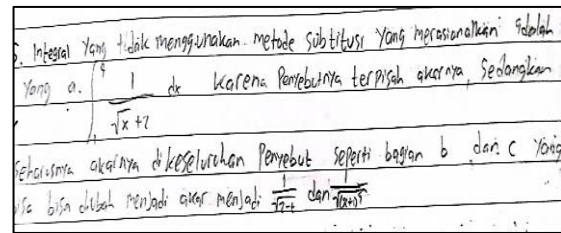 5. Integral yang tidak menggunakan metode substitusi yang merasionalkan adalah
yang a. ∫₁⁴ 1/(√x + 2) dx karena Penyebutnya terpisah akarnya, Sedangkan
Seharusnya akarnya dikeseluruhan Penyebut seperti bagian b dan c yang
bisa diubah menjadi akar menjadi 1/√(2-t) dan